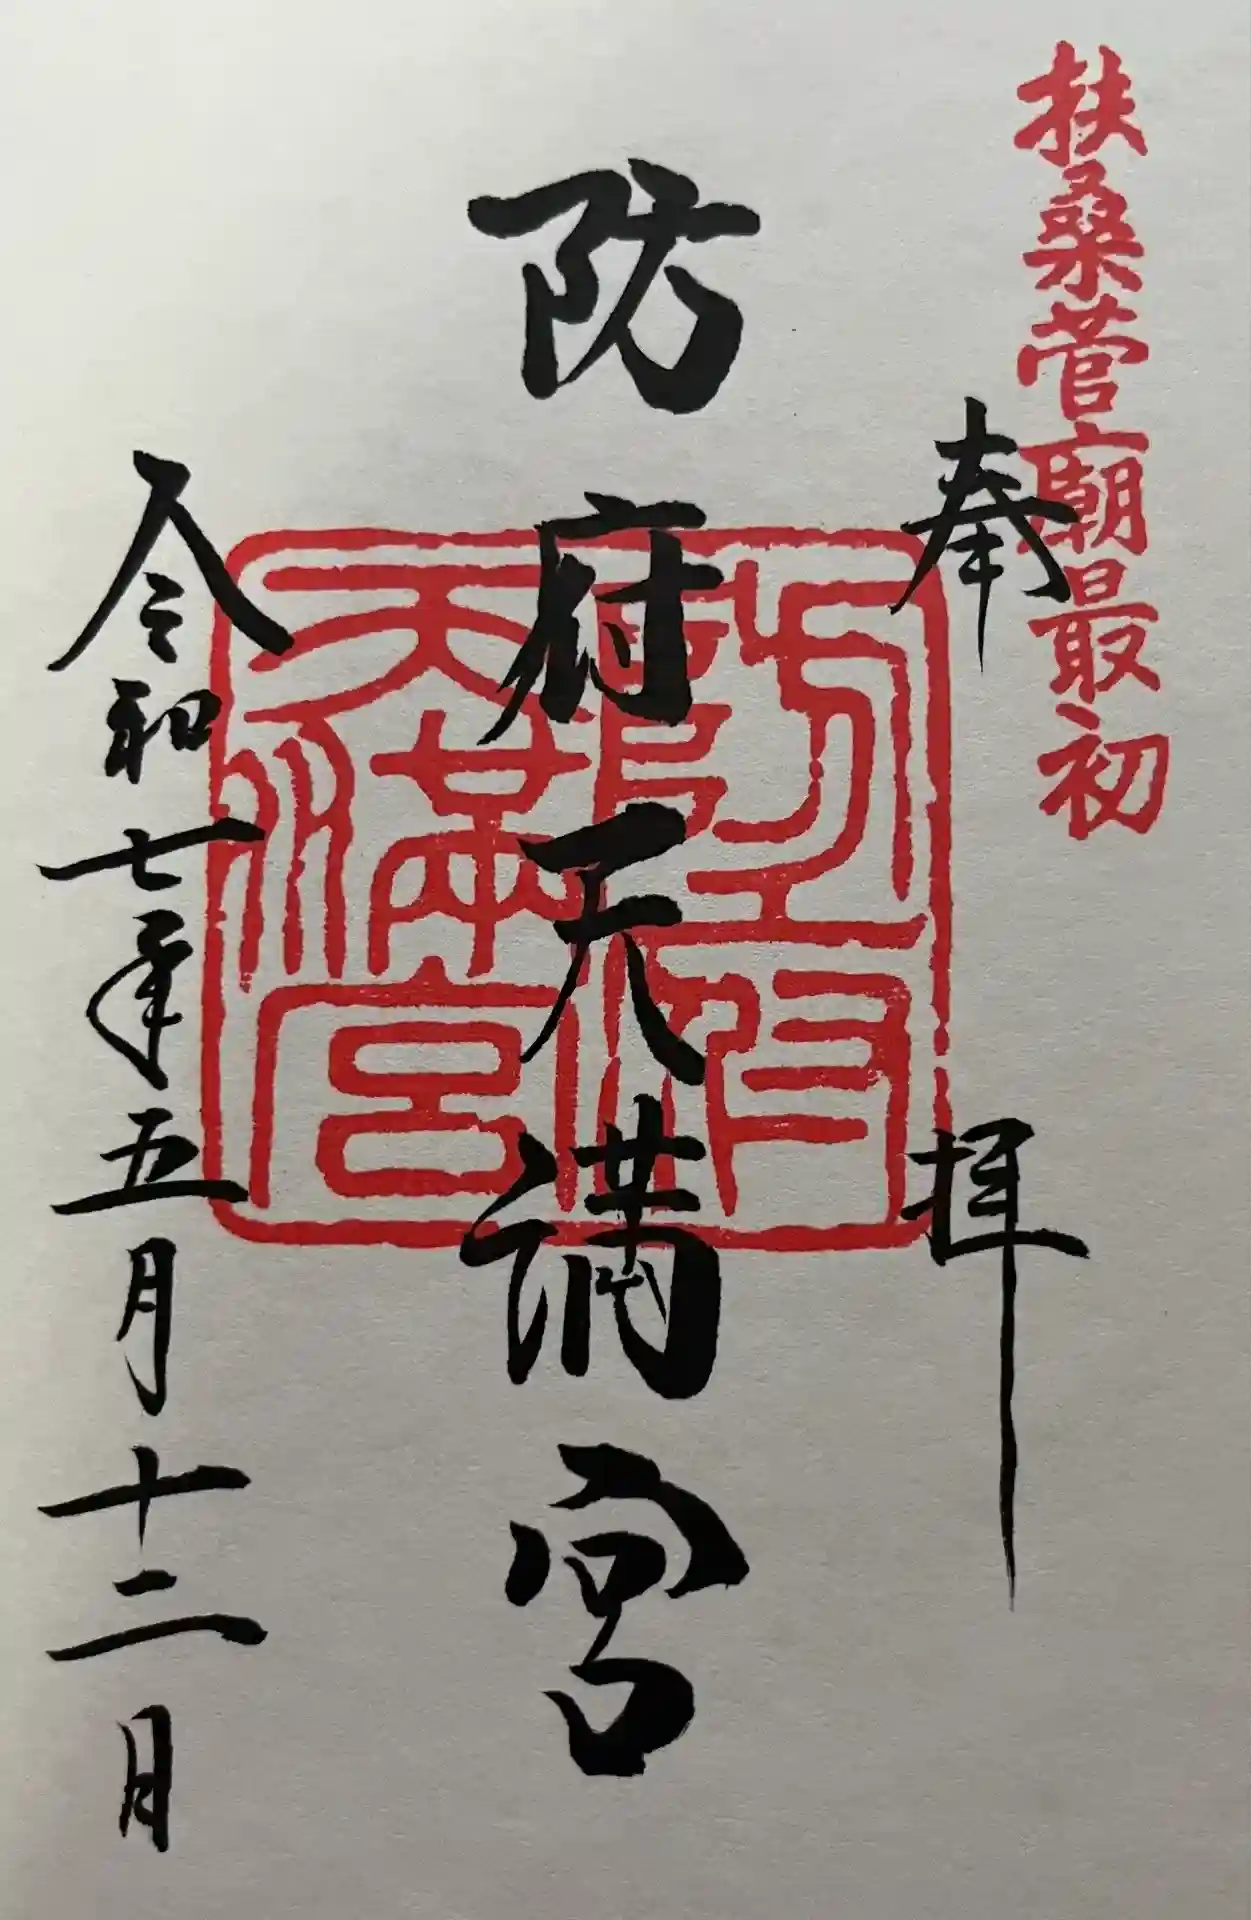 扶桑菅廟最初
奉拝
防府天満宮
防府
天滿宮
令和七年五月十二日